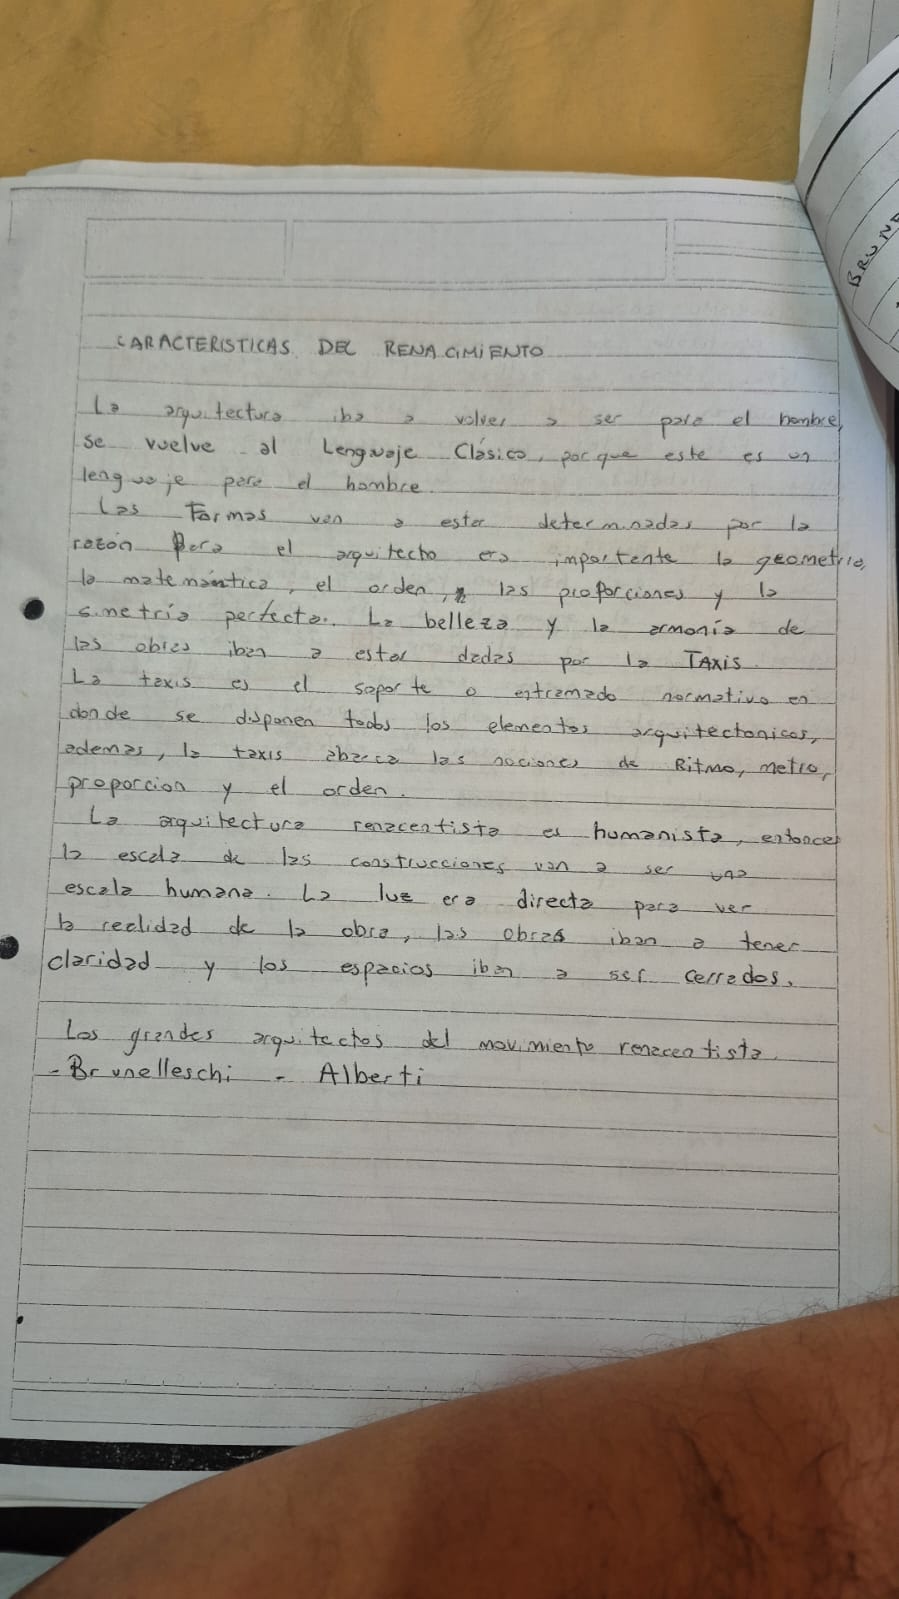 CARACTERISTICAS DEL RENACIMIENTO
La arquitectura iba a volver a ser para el hombre,
se vuelve al Lenguaje Clásico, porque este es un
lenguaje para el hombre.
Las Formas van a estar determinadas por la
razón Para el arquitecto era importante la geometria,
la matemántica, el orden, las proporciones y la
simetría perfecta. La belleza y la armonía de
las obras iban a estar dadas por la TAXIS.
La taxis es el soporte o entramado normativo en
donde se disponen todos los elementos arquitectonicos,
ademas, la taxis abarca las nociones de Ritmo, metro,
proporcion y el orden.
La arquitectura renacentista es humanista, entonces
la escala de las construcciones van a ser una
escala humana. La luz era directa para ver
la realidad de la obra, las obras iban a tener
claridad y los espacios iban a ser cerrados.
Los grandes arquitectos del movimiento renacentista.
- Brunelleschi - Alberti
BRUN